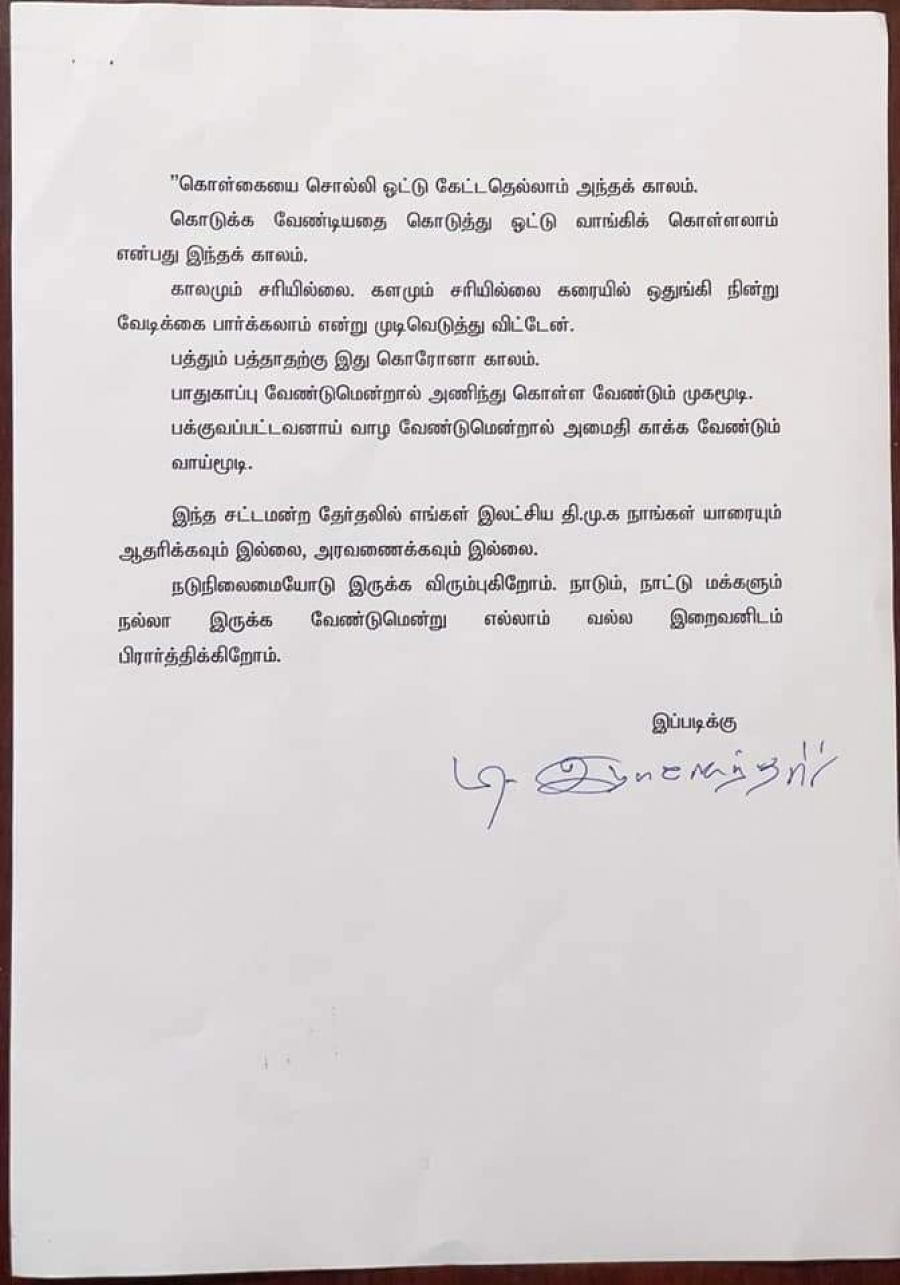 "கொள்கையை சொல்லி ஒட்டு கேட்டதெல்லாம் அந்தக் காலம்.
கொடுக்க வேண்டியதை கொடுத்து ஒட்டு வாங்கிக் கொள்ளலாம்
என்பது இந்தக் காலம்.
காலமும் சரியில்லை. களமும் சரியில்லை கரையில் ஒதுங்கி நின்று
வேடிக்கை பார்க்கலாம் என்று முடிவெடுத்து விட்டேன்.
பத்தும் பத்தாதற்கு இது கொரோனா காலம்.
பாதுகாப்பு வேண்டுமென்றால் அணிந்து கொள்ள வேண்டும் முகமூடி.
பக்குவப்பட்டவனாய் வாழ வேண்டுமென்றால் அமைதி காக்க வேண்டும்
வாய்மூடி.
இந்த சட்டமன்ற தேர்தலில் எங்கள் இலட்சிய தி.மு.க நாங்கள் யாரையும்
ஆதரிக்கவும் இல்லை, அரவணைக்கவும் இல்லை.
நடுநிலைமையோடு இருக்க விரும்புகிறோம். நாடும், நாட்டு மக்களும்
நல்லா இருக்க வேண்டுமென்று எல்லாம் வல்ல இறைவனிடம்
பிரார்த்திக்கிறோம்.
இப்படிக்கு